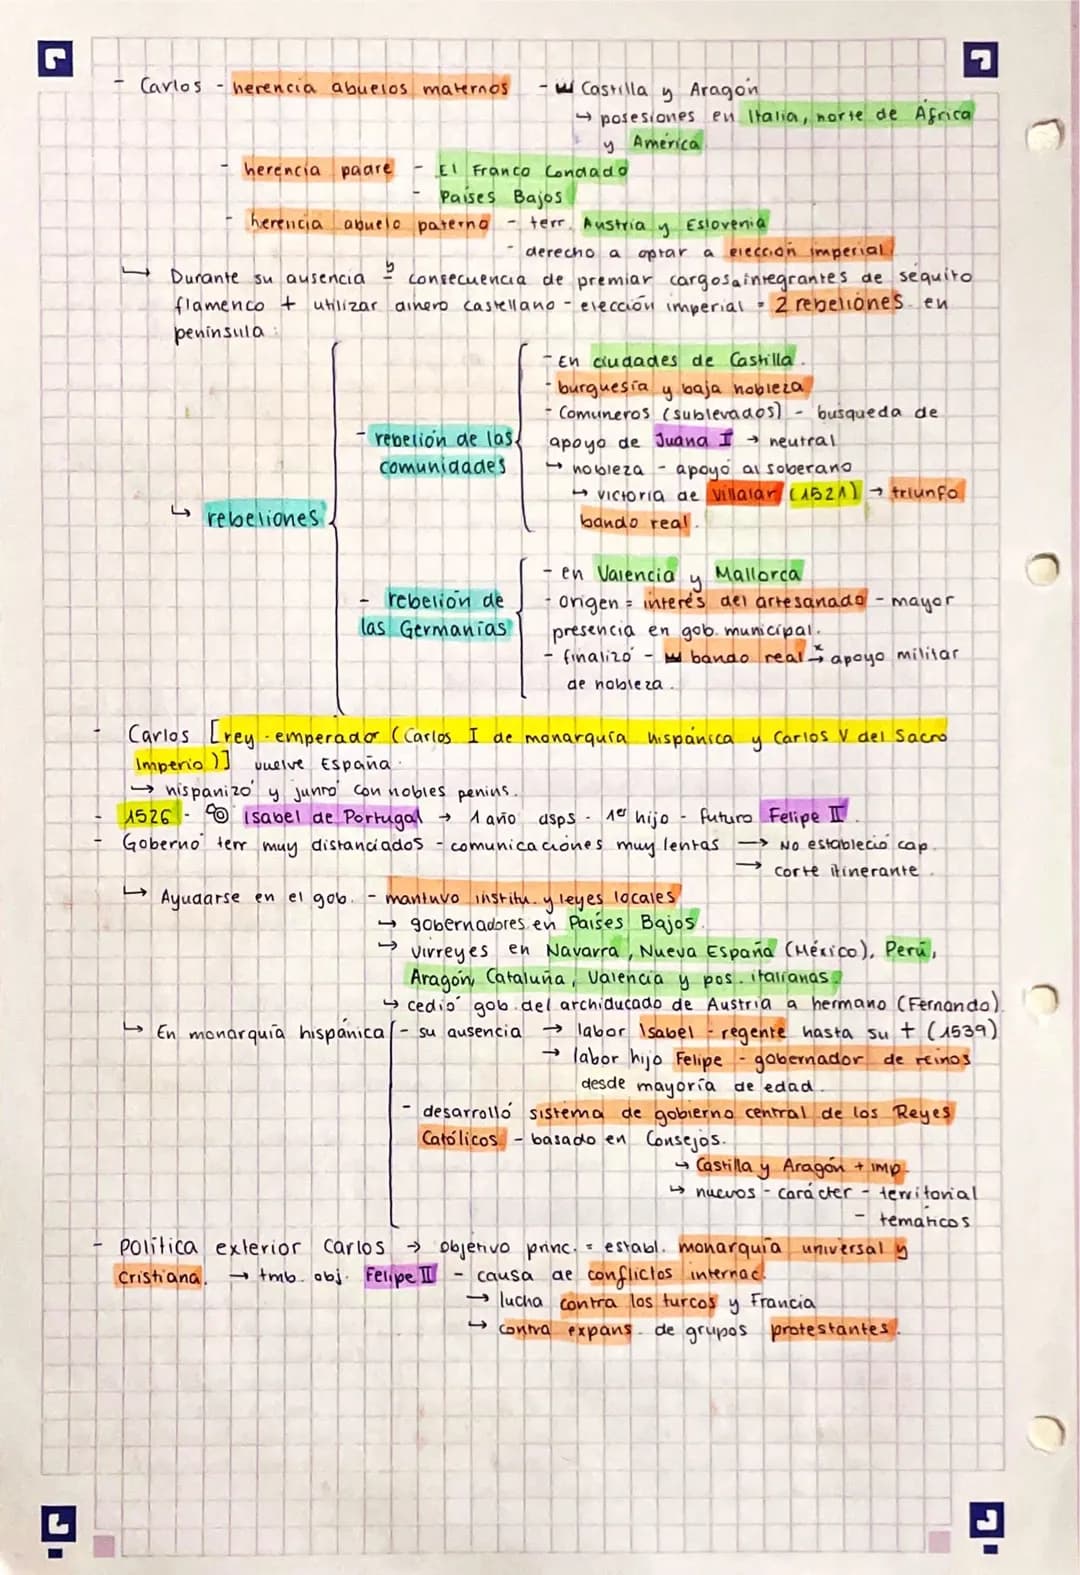 - Carlos - herencia abuelos maternos - Castilla y Aragón
→ posesiones en Italia, norte de África
y América
- herencia padre - El Franco Condado
- Países Bajos
- herencia abuelo paterno - terr. Austria y Eslovenia
- derecho a optar a elección imperial
↳ Durante su ausencia y consecuencia de premiar cargos a integrantes de séquito
flamenco + utilizar dinero castellano - elección imperial = 2 rebeliones en
península:
↳ rebeliones
- rebelión de las
comunidades
- En ciudades de Castilla.
- burguesía y baja nobleza
- Comuneros (sublevados) - busqueda de
apoyo de Juana I → neutral
↳ nobleza - apoyó al soberano
↳ victoria de Villalar (1521) → triunfo
bando real.
- rebelión de
las Germanías
- en Valencia y Mallorca
- origen = interés del artesanado - mayor
presencia en gob. municipal.
- finalizó - bando real x→ apoyo militar
de nobleza.
- Carlos [rey-emperador (Carlos I de monarquía hispánica y Carlos V del Sacro
Imperio)] vuelve España.
↳ hispanizó y juntó con nobles penins.
- 1526 - Isabel de Portugal → 1 año dsps - 1er hijo - futuro Felipe II.
- Goberno terr muy distanciados - comunicaciones muy lentas → No estableció cap.
→ corte itinerante.
↳ Ayudarse en el gob. - mantuvo institu. y leyes locales
↳ gobernadores en Países Bajos.
↳ virreyes en Navarra, Nueva España (México), Perú,
Aragón, Cataluña, Valencia y pos. italianas.
↳ cedió gob. del archiducado de Austria a hermano (Fernando).
↳ En monarquía hispánica - su ausencia → labor Isabel - regente hasta su † (1539)
→ labor hijo Felipe - gobernador de reinos
desde mayoría de edad.
- desarrolló sistema de gobierno central de los Reyes
Católicos - basado en Consejos.
↳ Castilla y Aragón + imp.
↳ nuevos - carácter - territorial
- temáticos
- Política exterior Carlos → objetivo princ. = establ. monarquía universal y
cristiana. → tmb. obj. Felipe II - causa de conflictos internac.
↳ lucha contra los turcos y Francia
↳ contra expans. de grupos protestantes.